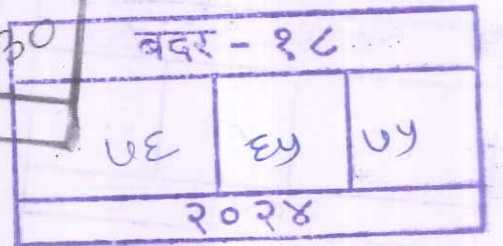 30
बदर - १८
७६ ६५ ७५
२०२४